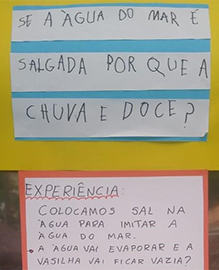 SE A ÀGUA DO MAR É
SALGADA POR QUE A
CHUVA E DOCE?
EXPERIÊNCIA:
COLOCAMOS SAL NA
ÀGUA PARA IMITAR A
ÀGUA DO MAR.
• A ÀGUA VAI EVAPORAR E A
VASILHA VAI FICAR VAZIA?